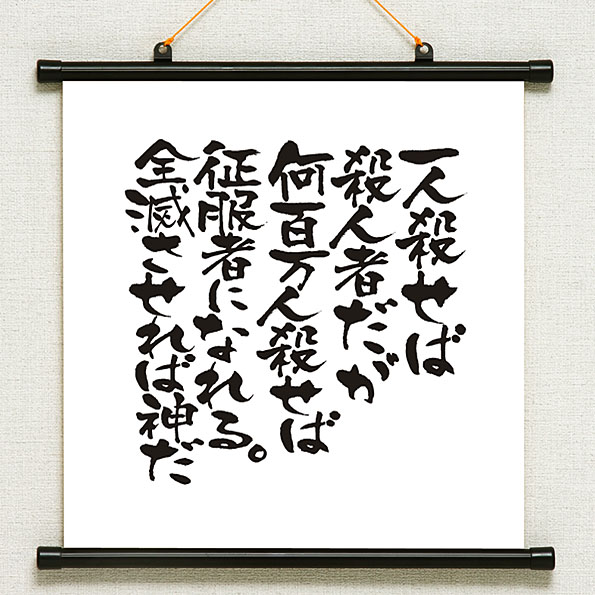 一人殺せば
殺人者だが
何百万人殺せば
征服者になれる。
全滅させれば神だ